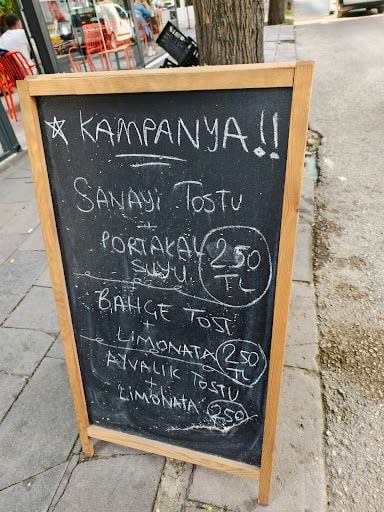 ☆ KAMPANYA!!
SANAYİ TOSTU
+
PORTAKAL
SUYU 250 TL
BAHÇE TOST
+
LIMONATA 250 TL
AYVALIK TOSTU
+
LIMONATA 250